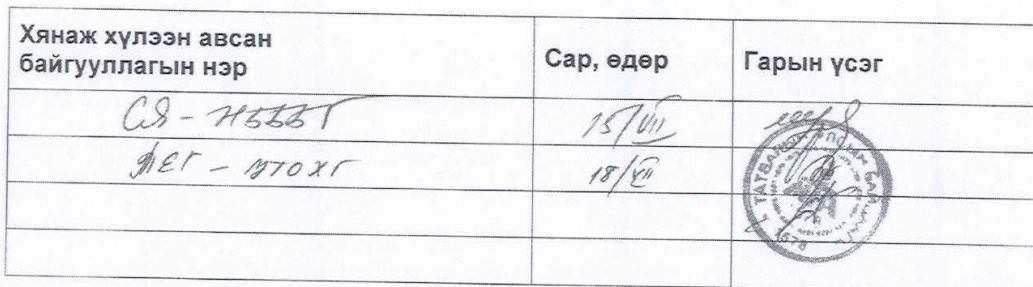 Хянаж хүлээн авсан
байгууллагын нэр
Сар, өдөр
Гарын үсэг
СЯ - НБББГ
15/VII
ТЕГ -
18/VII